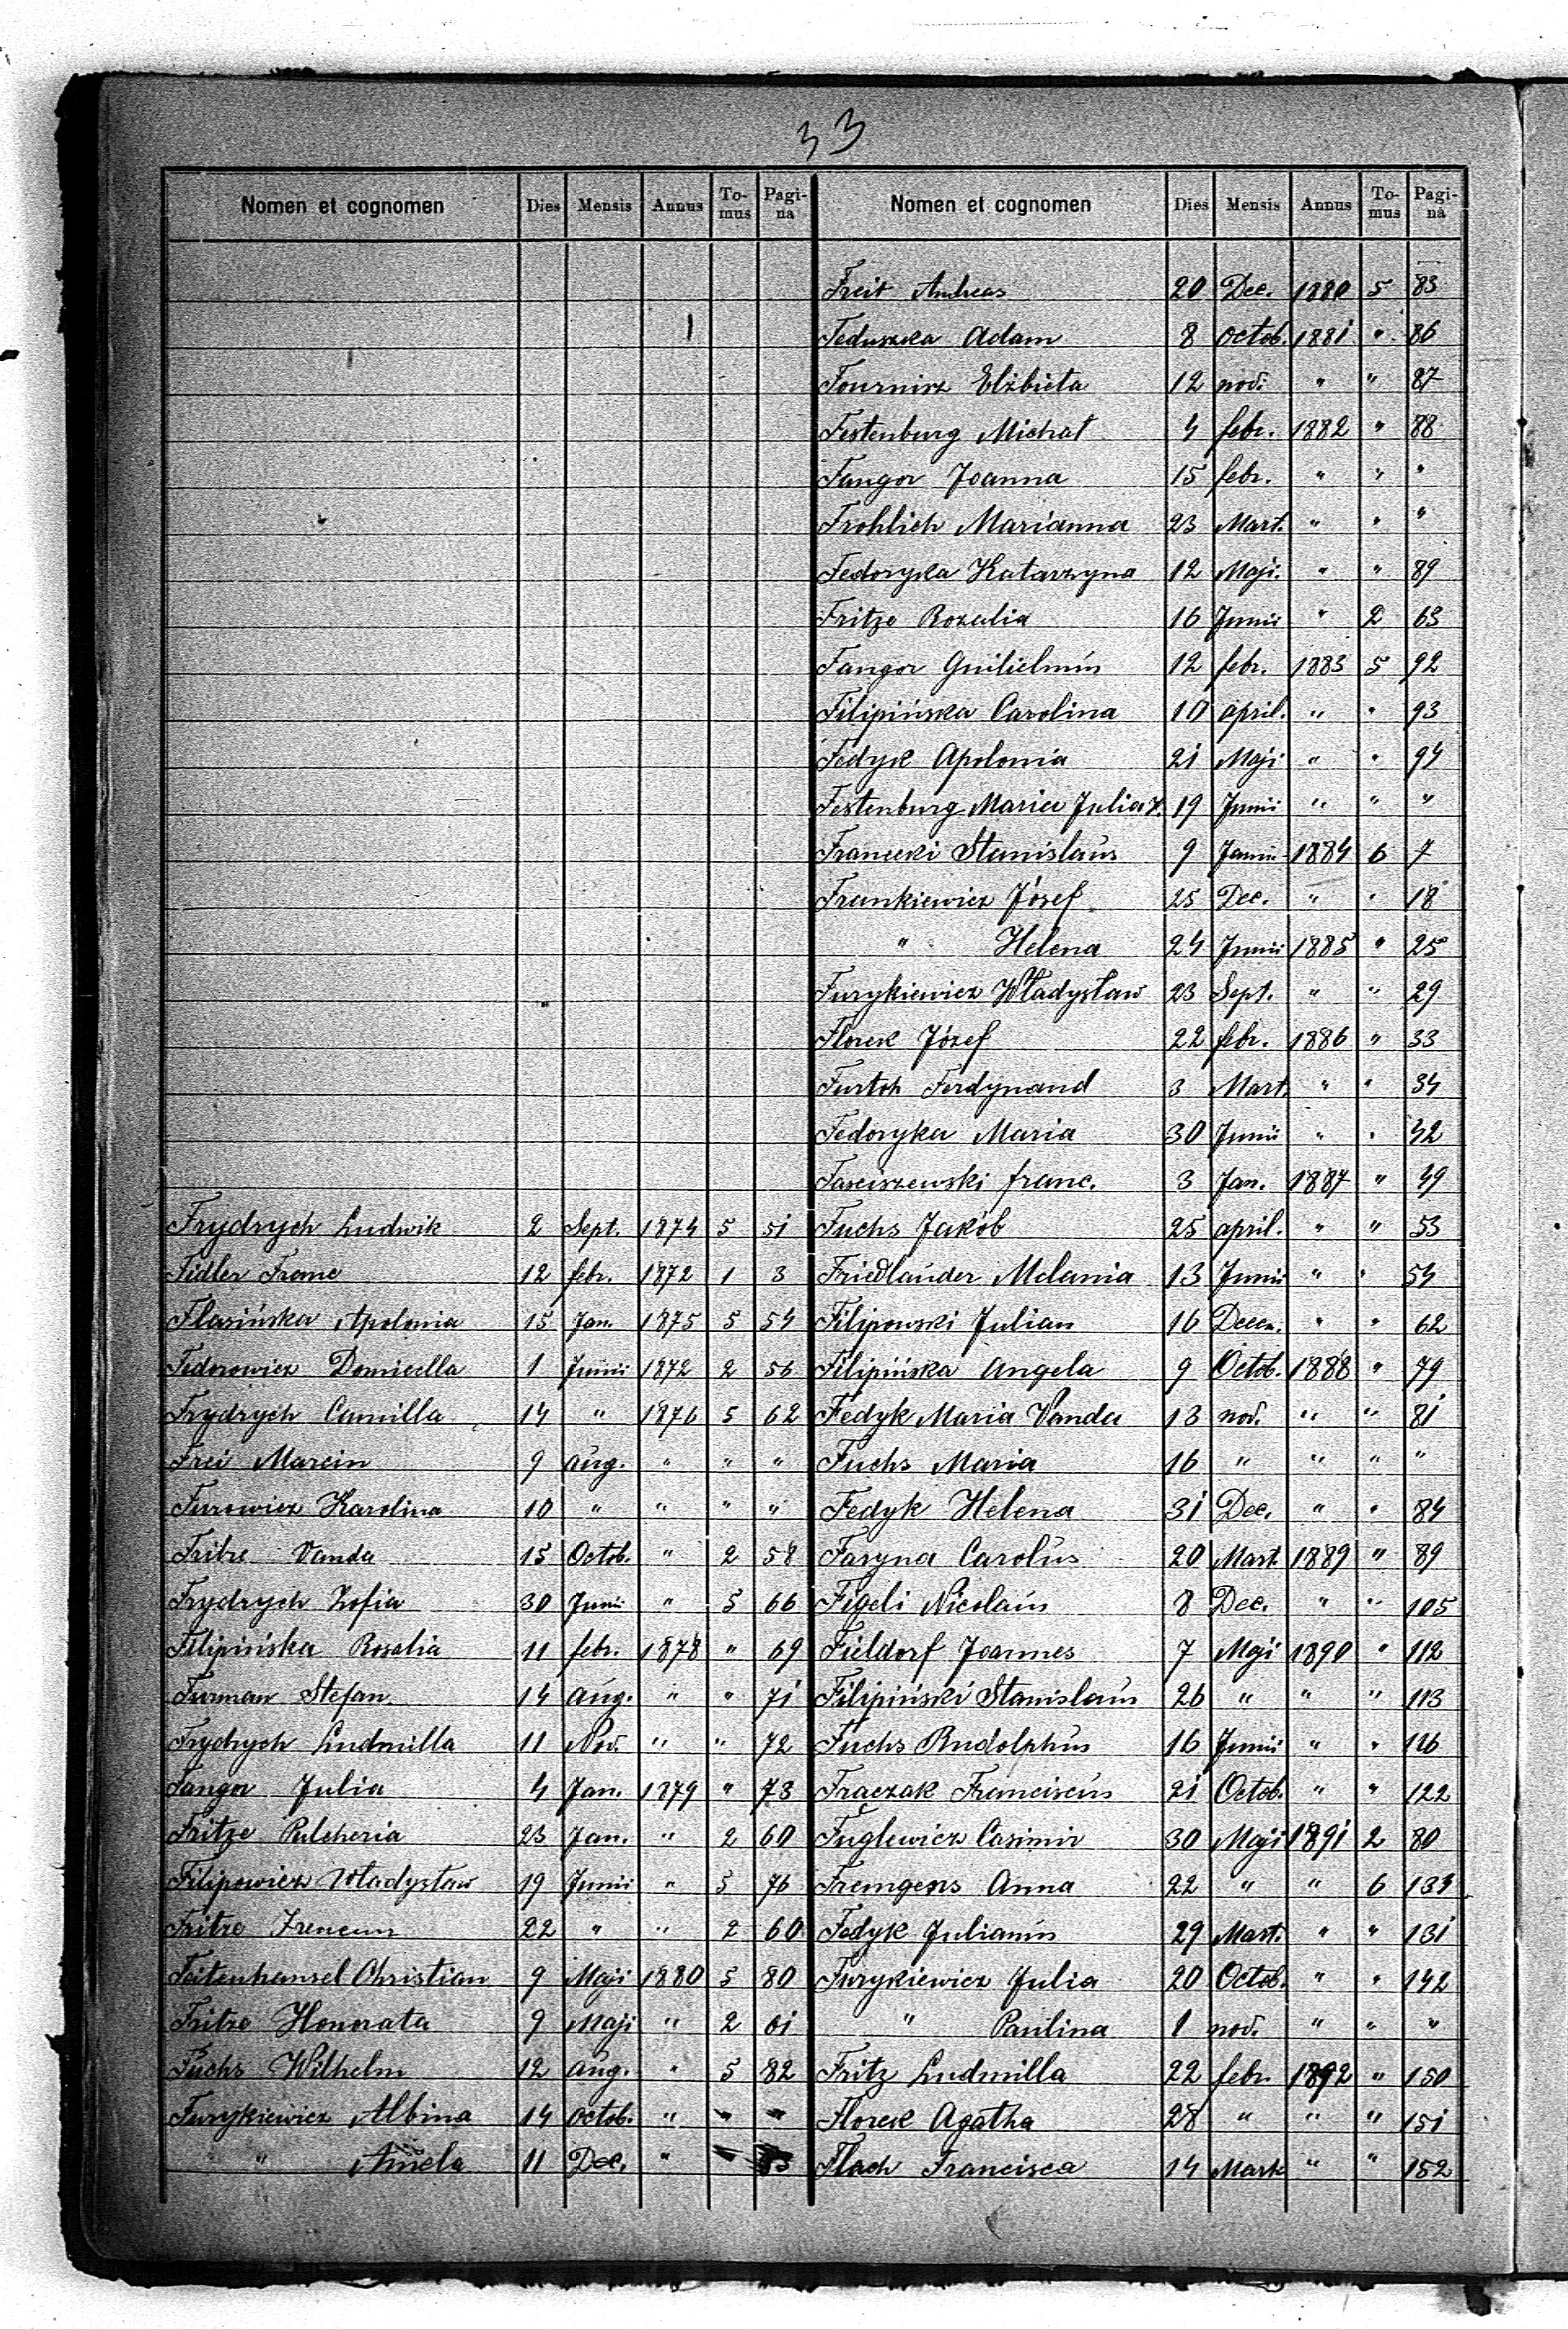 33
Nomen et cognomen Dies Mensis Annus To-mus Pagi-na Nomen et cognomen Dies Mensis Annus To-mus Pagi-na
Freit Andreas 20 Dec. 1880 5 83
Feduszka Adam 8 Octob. 1881 " 86
Fournisz Elżbieta 12 nov. " " 87
Festenburg Michał 4 febr. 1882 " 88
Fangor Joanna 15 febr. " " "
Frohlich Marianna 23 Mart. " " "
Fedoryka Katarzyna 12 Maji. " " 89
Fritze Rozalia 16 Junii " 2 63
Fangor Guilielmus 12 febr. 1883 5 92
Filipińska Carolina 10 april. " " 93
Fedyk Apolonia 21 Maji " " 94
Festenburg Maria Julia 19 Junii " " "
Franecki Stanislaus 9 1884 6 7
Frankiewicz Józef 25 Dec. " " 18
" Helena 24 Junii 1885 " 25
Furykiewicz Władysław 23 Sept. " " 29
Florek Józef 22 febr. 1886 " 33
Furtch Ferdynand 3 Mart. " " 34
Fedoryka Maria 30 Junii " " 42
franc. 3 Jan. 1887 " 49
Frydrych Ludwik 2 Sept. 1874 5 51 Fuchs Jakób 25 april. " " 53
Fidler Franc 12 febr. 1872 1 3 Friedlander Melania 13 Junii " " 54
Flasińska Apolonia 15 Jan. 1875 5 54 Filipowski Julian 16 Decem. " " 62
Fedorowicz Domicella 1 Junii 1872 2 56 Filipińska Angela 9 Octob. 1888 " 79
Frydrych Camilla 14 " 1876 5 62 Fedyk Maria Vanda 13 nov. " " 81
Frei Marcin 9 aug. " " " Fuchs Maria 16 " " " "
Furowicz Karolina 10 " " " " Fedyk Helena 31 Dec. " " 84
Fritze Vanda 15 Octob. " 2 58 Faryna Carolus 20 Mart. 1889 " 89
Frydrych Zofia 30 Junii " 5 66 Figeli Nicolaus 8 Dec. " " 105
Filipińska Rosalia 11 febr. 1878 " 69 Fieldorf Joannes 7 Maji 1890 " 112
Furman Stefan 14 aug. " " 71 Filipiński Stanislaus 26 " " " 113
Frydrych Ludmilla 11 Nov. " " 72 Fuchs Rudolphus 16 Junii " " 116
Fangor Julia 4 Jan. 1879 " 73 Fraczak Franciscus 21 Octob. " " 122
Fritze Pulcheria 23 Jan. " 2 60 Fuglewicz Casimir 30 Maji 1891 2 80
Filipowicz Władysław 19 Junii " 5 76 Fremgens Anna 22 " " 6 133
Fritze Ireneus 22 " " 2 60 Fedyk Julianus 29 Mart. " " 131
Feitenhansel Christian 9 Maji 1880 5 80 Furykiewicz Julia 20 Octob. " " 142
Fritze Honorata 9 Maji " 2 61 " Paulina 1 nov. " " "
Fuchs Wilhelm 12 aug. " 5 82 Fritz Ludmilla 22 febr. 1892 " 150
Furykiewicz Albina 14 Octob. " " " Florek Agatha 28 " " " 151
" Amela 11 Dec. " " Flach Francisca 14 Mart " " 152